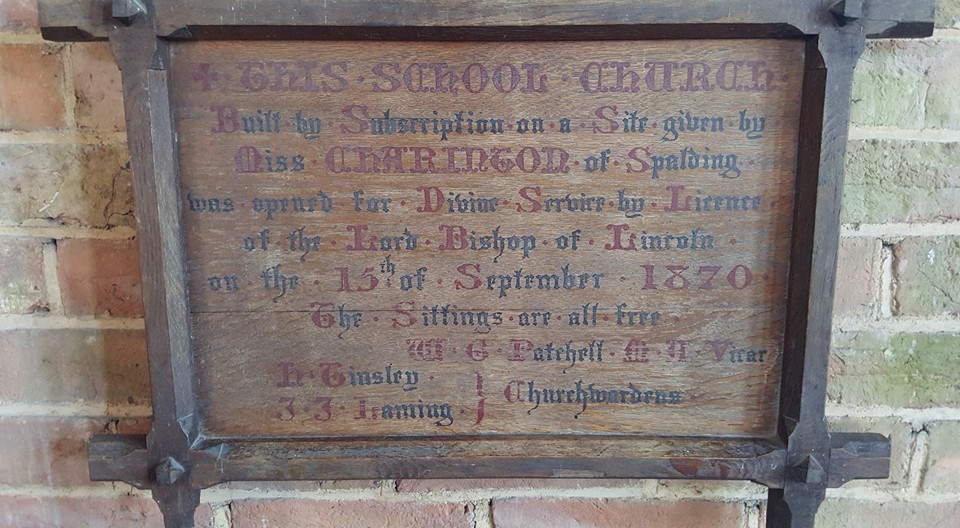 ✠ THIS · SCHOOL · CHURCH ·
Built · by · Subscription · on · a · Site · given · by
Miss · CHARINTON · of · Spalding ·
was · opened · for · Divine · Service · by · Licence
of · the · Lord · Bishop · of · Lincoln ·
on · the · 15th of · September · 1870 ·
The · Sittings · are · all · free ·
W · E · Patchell · M · A · Vicar
Tinsley ·
J · J · Laming · } Churchwardens